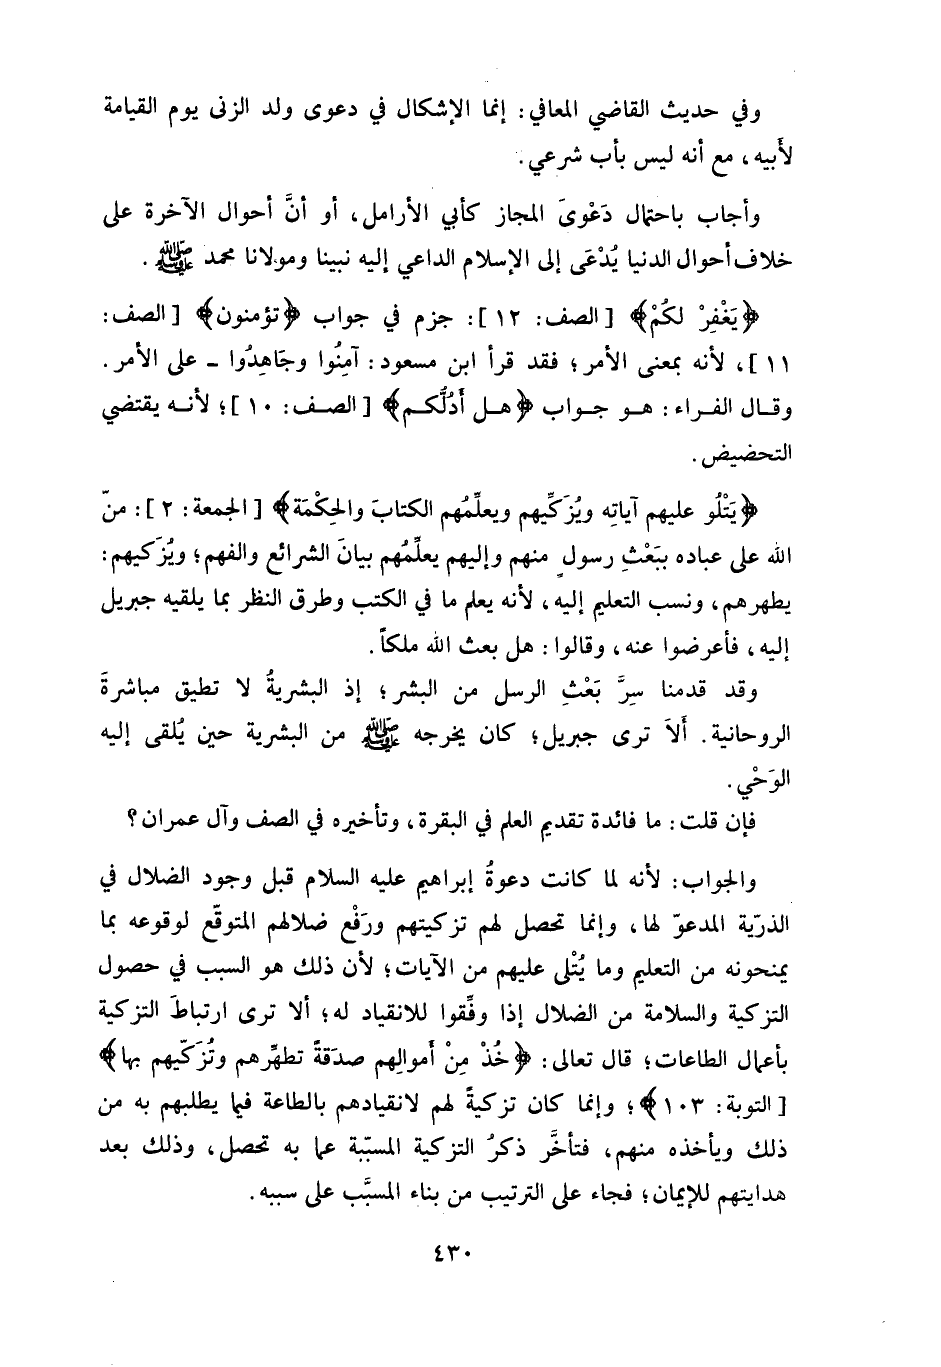 وفي حديث القاضي المعافي: إنما الإشكال في دعوى ولد الزنى يوم القيامة
لأبيه، مع أنه ليس بأب شرعي.
وأجاب باحتمال دَعْوىَ المجاز كأبي الأرامل، أو أنَّ أحوال الآخرة على
خلاف أحوال الدنيا يُدْعَى إلى الإسلام الداعي إليه نبينا ومولانا محمد ﷺ.
﴿يَغْفِرْ لكُمْ﴾ [الصف: ١٢]: جزم في جواب ﴿تؤمنون﴾ [الصف:
١١]، لأنه بمعنى الأمر؛ فقد قرأ ابن مسعود: آمِنُوا وجَاهِدُوا ـ على الأمر.
وقـال الفـراء: هـو جـواب ﴿هـل أَدُلُّكـم﴾ [الصـف: ١٠]؛ لأنـه يقتضي
التحضيض.
﴿يَتْلُو عليهم آياتِه ويُزَكِّيهم ويعلِّمُهم الكتابَ والحِكْمَة﴾ [الجمعة: ٢]: منّ
الله على عباده ببَعْثِ رسولٍ منهم وإليهم يعلِّمُهم بيانَ الشرائع والفهم؛ ويُزَكيهم:
يطهرهم، ونسب التعليم إليه، لأنه يعلم ما في الكتب وطرق النظر بما يلقيه جبريل
إليه، فأعرضوا عنه، وقالوا: هل بعث الله ملكاً.
وقد قدمنا سِرَّ بَعْثِ الرسل من البشر؛ إذ البشريةُ لا تطيق مباشرةَ
الروحانية. أَلاَ ترى جبريل؛ كان يخرجه ﷺ من البشرية حين يُلقى إليه
الوَحْي.
فإن قلت: ما فائدة تقديم العلم في البقرة، وتأخيره في الصف وآل عمران؟
والجواب: لأنه لما كانت دعوةُ إبراهيم عليه السلام قبل وجود الضلال في
الذرّية المدعوّ لها، وإنما تحصل لهم تزكيتهم ورَفْع ضلالهم المتوقّع لوقوعه بما
يمنحونه من التعليم وما يُتْلى عليهم من الآيات؛ لأن ذلك هو السبب في حصول
التزكية والسلامة من الضلال إذا وفِّقوا للانقياد له؛ ألا ترى ارتباطَ التزكية
بأعمال الطاعات؛ قال تعالى: ﴿خُذْ مِنْ أموالِهم صدَقةً تطهِّرهم وتُزَكّيهم بها﴾
[التوبة: ١٠٣﴾؛ وإنما كان تزكيةً لهم لانقيادهم بالطاعة فيما يطلبهم به من
ذلك ويأخذه منهم، فتأخَّر ذكرُ التزكية المسبّبة عما به تحصل، وذلك بعد
هدايتهم للإيمان؛ فجاء على الترتيب من بناء المسبَّب على سببه.
٤٣٠